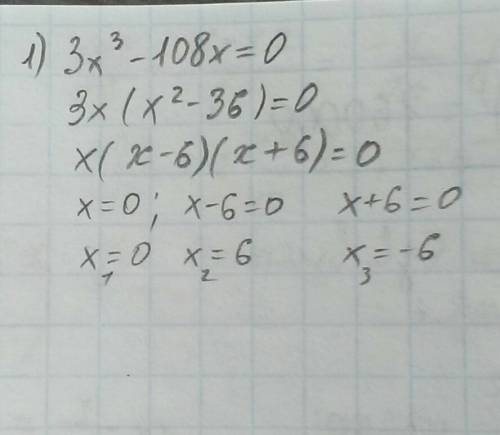 1) 3x³ - 108x = 0
3x (x² - 36) = 0
x( x - 6)( x + 6) = 0
x = 0; x - 6 = 0 x + 6 = 0
x₁ = 0 x₂ = 6 x₃ = -6